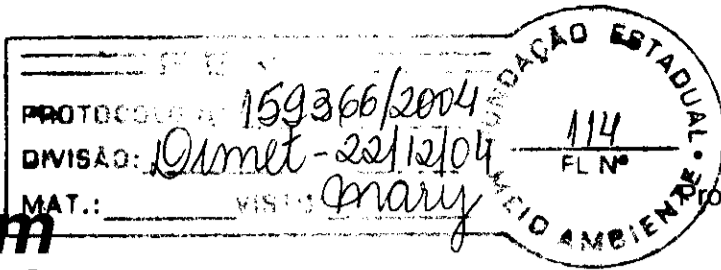 PROTOCOLO Nº 159366/2004
DIVISÃO: Dimet - 22/12/04
MAT.: VISTO mary
FUNDAÇÃO ESTADUAL
114
FL Nº
MEIO AMBIENTE
m